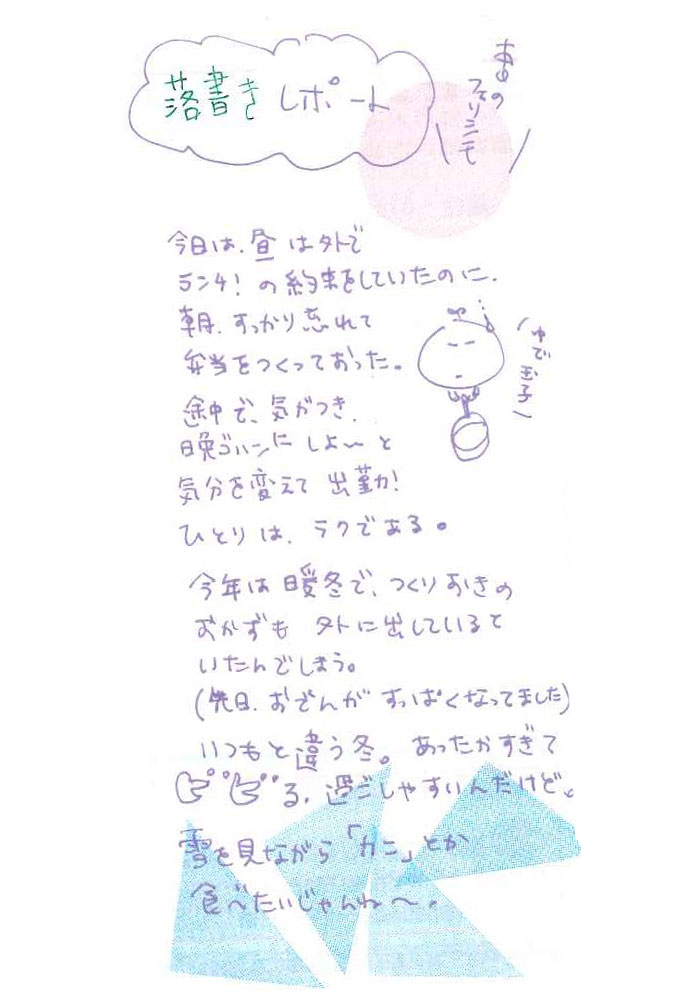 落書きレポート
あの
フェリシモ
今日は、昼は外で
ランチ!の約束をしていたのに、
朝、すっかり忘れて
弁当をつくっておった。
ゆで玉子
途中で、気がつき、
晩ゴハンにしよ〜と
気分を変えて出勤!
ひとりは、ラクである。
今年は暖冬で、つくりおきの
おかずも外に出していると
いたんでしまう。
(先日、おでんがすっぱくなってました)
いつもと違う冬。あったかすぎて
る、過ごしやすいんだけど、
雪を見ながら「カニ」とか
食べたいじゃんね〜。